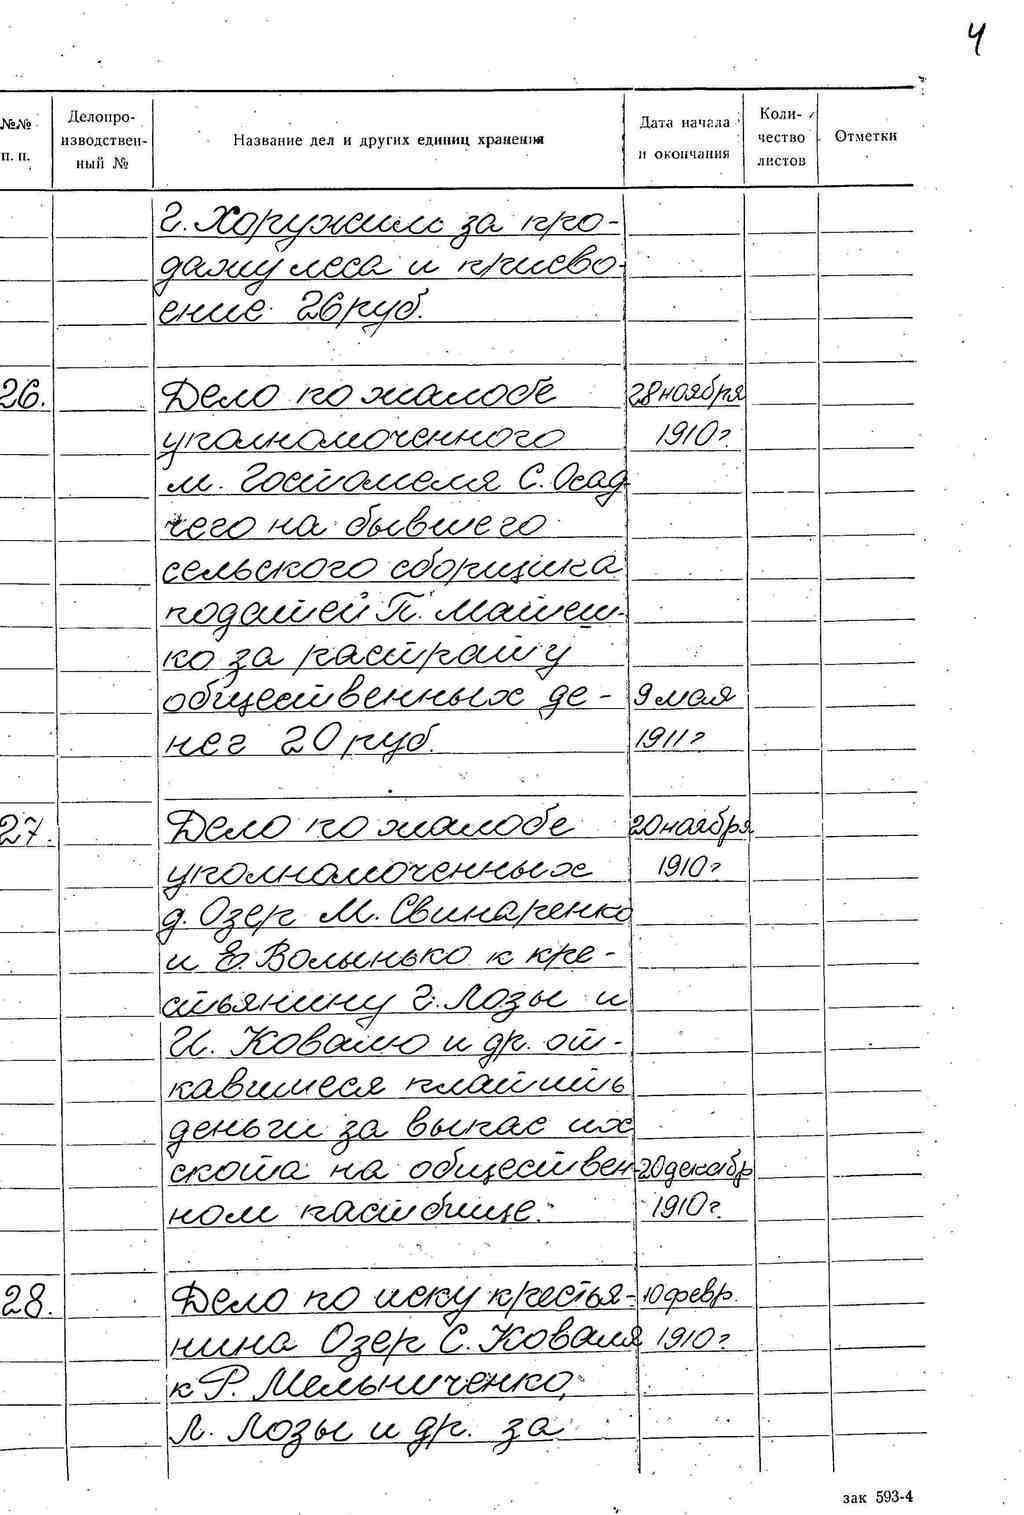 4
№№ п. п. Делопроизводственный № Название дел и других единиц хранения Дата начала и окончания Количество листов Отметки
г. Хоружим за про-
дажу леса и присво-
ение 26 руб.
26. Дело по жалобе 28 ноября
уполномоченного 1910 г.
м. Гостомеля С. Осад
чего на бывшего
сельского сборщика
податей П. Матеш-
ко за растрату
общественных де- 9 мая
нег 20 руб. 1911 г
27. Дело по жалобе 20 ноября
уполномоченных 1910 г
д. Озер М. Свинаренко
и Е. Волынько к кре-
стьянину Г. Лозы и
И. Ковалю и др. от-
кавшиеся платить
деньги за выпас их
скота на обществен- 20 декабр
ном пастбище. 1910 г.
28. Дело по иску крестья- 10 февр.
нина Озер С. Коваля 1910 г.
к Р. Мельниченко,
Л. Лозы и др. за
зак 593-4